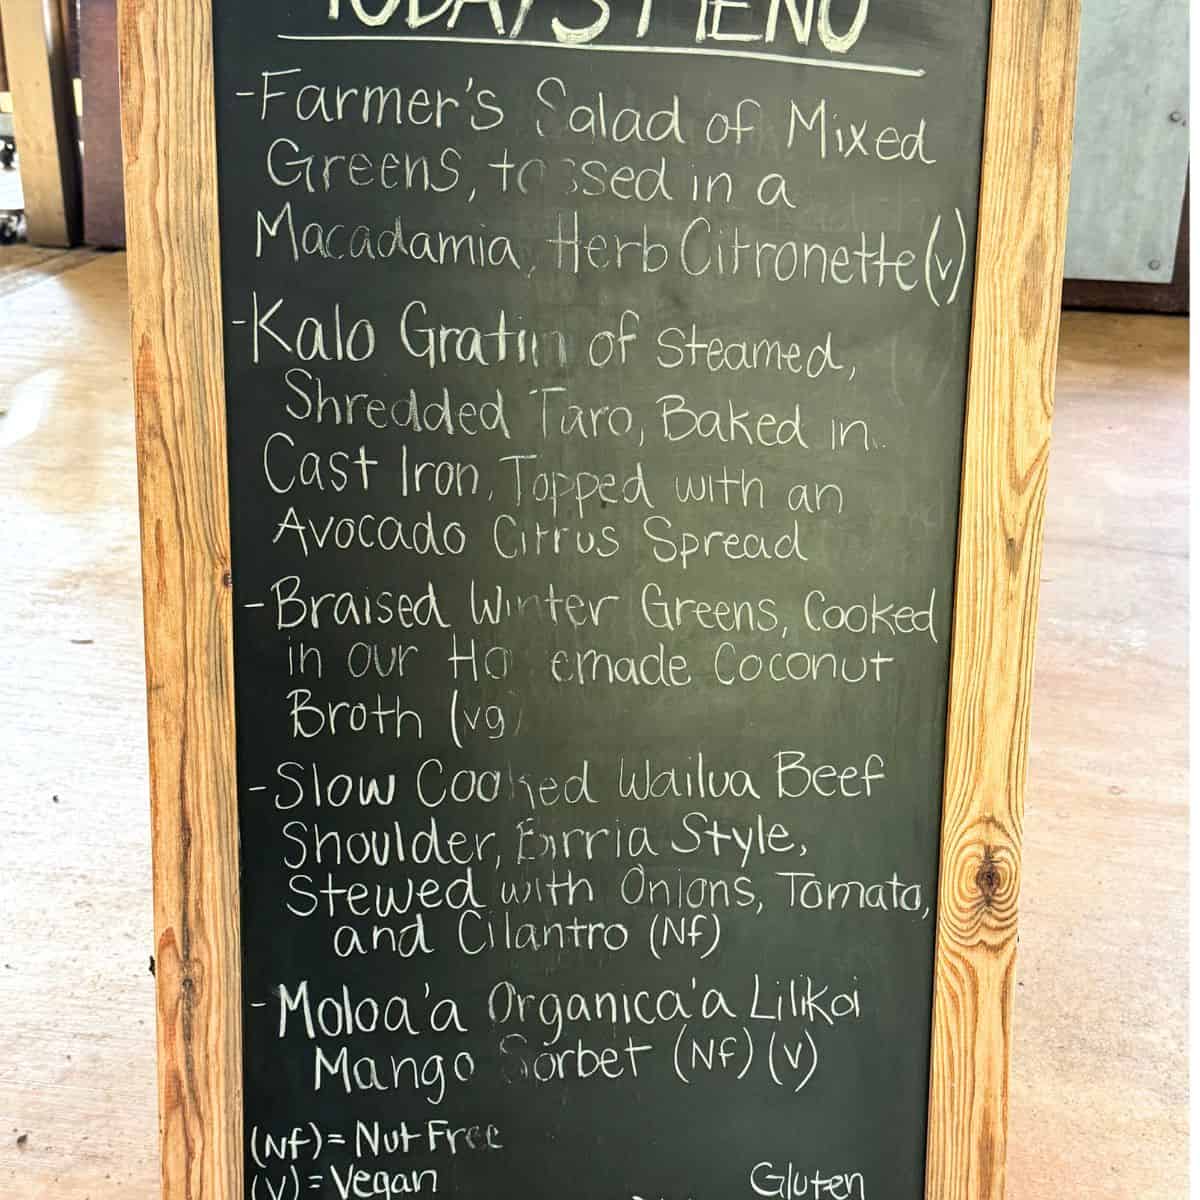 TODAY'S MENU
-Farmer's Salad of Mixed
Greens, tossed in a
Macadamia, Herb Citronette (v)
-Kalo Gratin of Steamed,
Shredded Taro, Baked in
Cast Iron, Topped with an
Avocado Citrus Spread
-Braised Winter Greens, Cooked
in our Homemade Coconut
Broth (vg)
-Slow Cooked Wailua Beef
Shoulder, Birria Style,
Stewed with Onions, Tomato,
and Cilantro (Nf)
-Moloa'a Organica'a Lilikoi
Mango Sorbet (Nf) (v)
(Nf) = Nut Free
(v) = Vegan
Gluten